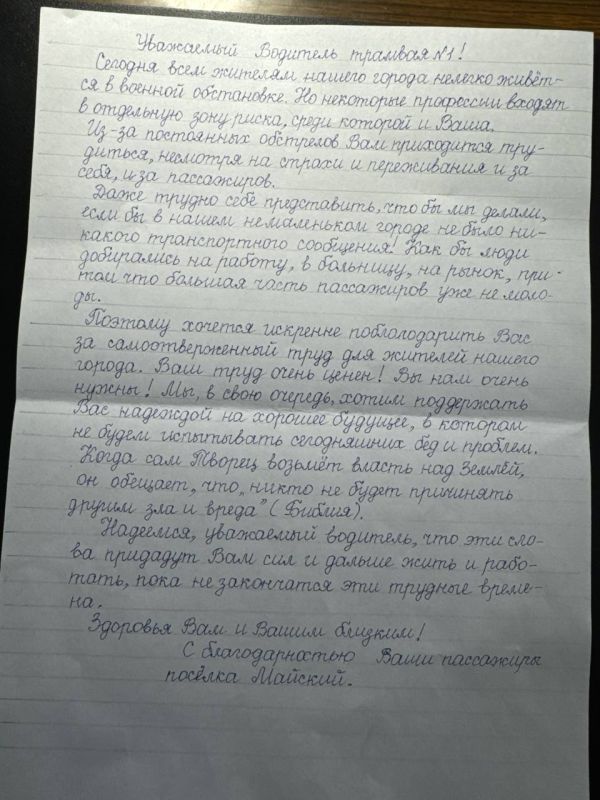 Уважаемый Водитель трамвая №1!
Сегодня всем жителям нашего города нелегко живёт-
ся в военной обстановке. Но некоторые профессии входят
в отдельную зону риска, среди которой и Ваша.
Из-за постоянных обстрелов Вам приходится тру-
диться, несмотря на страхи и переживания и за
себя, и за пассажиров.
Даже трудно себе представить, что бы мы делали,
если бы в нашем немаленьком городе не было ни-
какого транспортного сообщения! Как бы люди
добирались на работу, в больницу, на рынок, при-
том что большая часть пассажиров уже не моло-
ды.
Поэтому хочется искренне поблагодарить Вас
за самоотверженный труд для жителей нашего
города. Ваш труд очень ценен! Вы нам очень
нужны! Мы, в свою очередь, хотим поддержать
Вас надеждой на хорошее будущее, в котором
не будем испытывать сегодняшних бед и проблем.
Когда сам Творец возьмёт власть над Землёй,
он обещает, что „никто не будет причинять
другим зла и вреда" (Библия).
Надеемся, уважаемый водитель, что эти сло-
ва придадут Вам сил и дальше жить и рабо-
тать, пока не закончатся эти трудные време-
на.
Здоровья Вам и Вашим близким!
С благодарностью Ваши пассажиры
посёлка Майский.